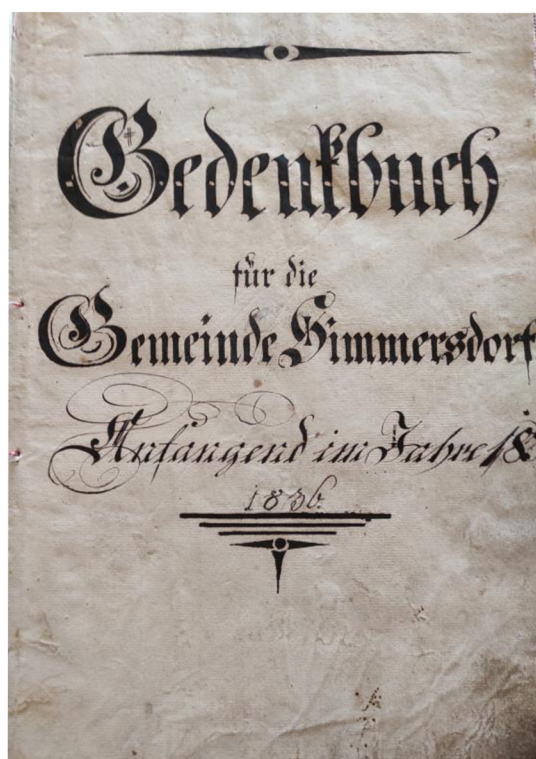 Gedenkbuch
für die
Gemeinde Simmersdorf
Anfangend im Jahre 18
1836.